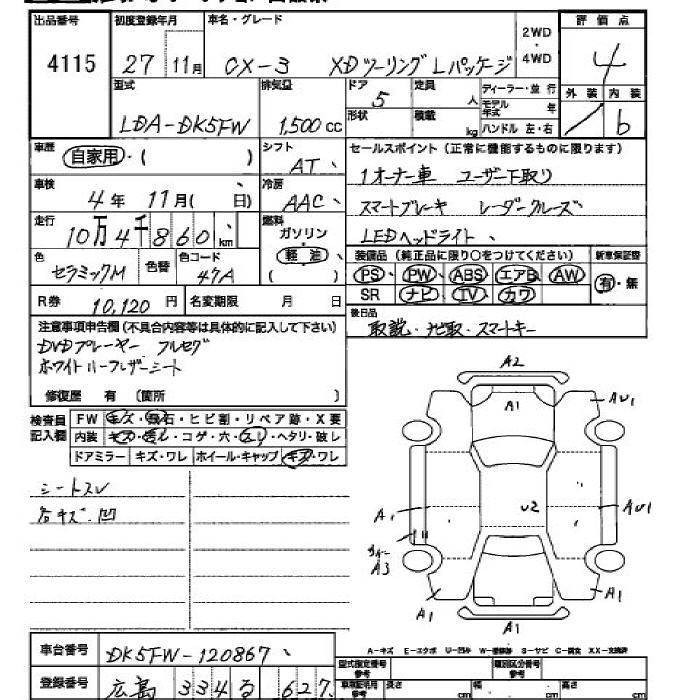 出品番号 初度登録年月 車名・グレード 評価点
4115 27 11月 CX-3 XDツーリング Lパッケージ 2WD・4WD 4
型式 排気量 ドア 定員 ディーラー・並行 外装 内装
LDA-DK5FW 1,500cc 5 人 モデル年式 年 b
形状 積載 kg ハンドル 左・右
車歴 自家用・( ) シフト AT セールスポイント(正常に機能するものに限ります)
車検 4年 11月( 日) 冷房 AAC 1オーナー車 ユーザー下取り
走行 10万4千860km 燃料 スマートブレーキ レーダークルーズ
ガソリン LEDヘッドライト
色 セラミックM 色替 色コード 47A 軽油 ( ) 装備品(純正品に限り○をつけてください) 新車保証書
PS PW ABS エアB AW 有・無
R券 10,120円 名変期限 月 日 SR ナビ TV カワ
注意事項申告欄(不具合内容等は具体的に記入して下さい) 後日品
DVDプレーヤー フルセグ 取説・ナビ取・スマートキー
ホワイトハーフレザーシート
修復歴 有 (箇所 )
検査員記入欄 FW キズ・飛石・ヒビ割・リペア跡・X要
内装 キズ・汚レ・コゲ・穴・スレ・ヘタリ・破レ
ドアミラー キズ・ワレ ホイール・キャップ キズ・ワレ
A2
A1 AU1
シートスレ
各キズ.凹
A1 U2 AU1
A3
A1 A1
A1
A-キズ E-エクボ U-凹み W-補修跡 S-サビ C-腐食 XX-交換済
車台番号 DK5FW-120867
型式指定番号 参考 類別区分番号 参考
登録番号 広島 334 る 627
車庫証明用 参考 長さ cm 幅 cm 高さ cm